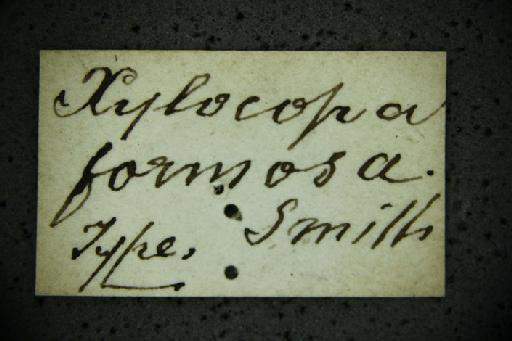 Xylocopa
formosa.
Type. Smith